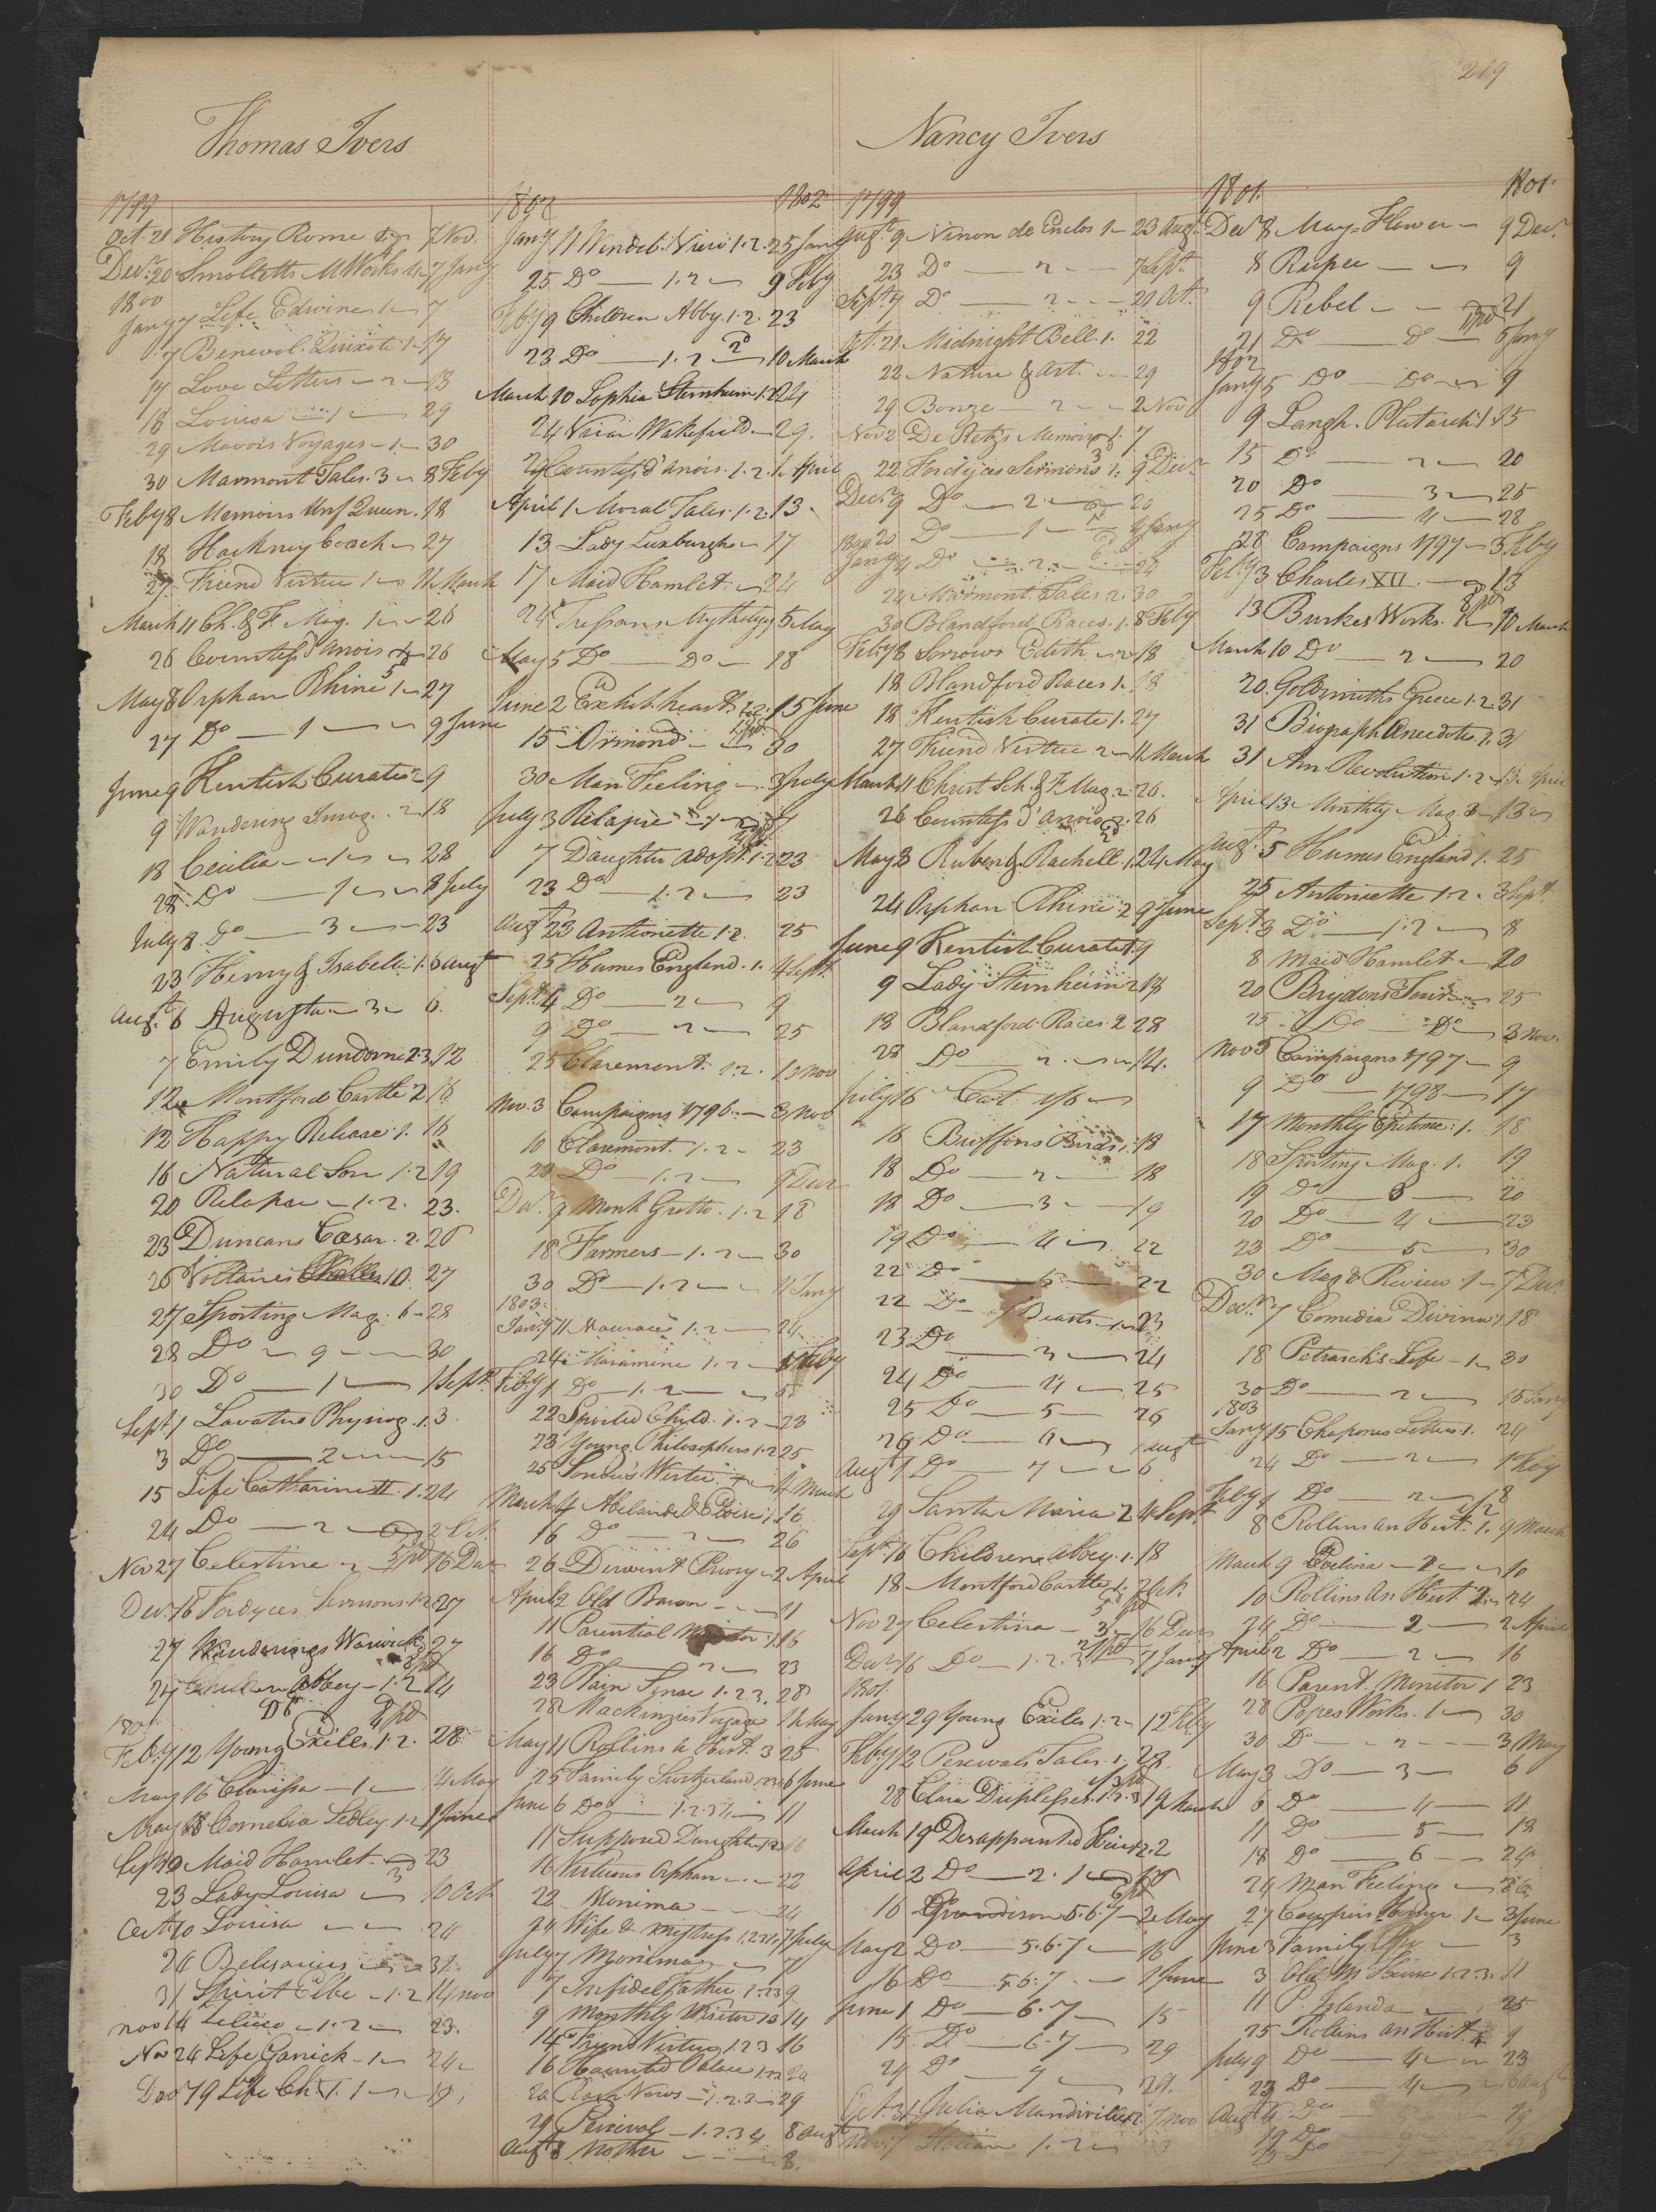 219
Thomas Ivers
1799
Oct. 21 History Rome 7 Nov.
Decr. 20 Smolletts Works 4 7 Jany
1800
Jany 7 Life Edwin 1 7
7 Benevol. Quixote 1 17
17 Love Letters 2 18
18 Louisa 1 29
29 Mavors Voyages 1 30
30 Marmont Tales 3 8 Feby
Feby 8 Memoirs Unf Queen. 18
18 Hackney Coach 27
27 Friend Virtue 1 11 March
March 11 Ch. & F. Mag. 1 26
26 Countess d'Anois 26
May 8 Orphan Rhine 1 27
27 Do 1 9 June
June 9 Kentish Curate 2 9
9 Wandering Imag. 2 18
18 Cecilia 1 28
28 Do 1 8 July
July 8 Do 3 23
23 Henry & Isabella 1. 6 Augt
Augt. 6 Augusta 3 6.
7 Emily Dundorne 2.3 12
12 Montford Castle 2 16
12 Happy Release 1. 16
16 Natural Son 1.2 19
20 Relapse 1.2. 23.
23 Duncans Cæsar. 2. 26
26 Voltaires 10. 27
27 Sporting Mag. 6 28
28 Do 9 30
30 Do 1 1 Sept
Sept 1 Lavatus Physiog. 1. 3.
3 Do 2 15
15 Life Catharine II. 1. 24
24 Do 2 2 Oct
Nov 27 Celestina 2 16 Dec
Decr 16 Fordyces Sermons 1.2 27
27 Wanderings Warwick 27
27 Children Abbey 1.2 14
Do
1801
Feby 12 Young Exiles 1.2. 28
May 16 Clarissa 1 14 May
May 18 Cornelia Sedley. 1.2 1 June
Sept 19 Maid Hamlet 23
23 Lady Louisa 10 Oct
Oct. 10 Louisa 24
24 Belisarius 31
31 Spirit Elbe 1.2 14 Nov
Nov 14 1.2 23.
Nov 24 Life Garrick 1 24
Decr 19 Life Ch. 1. 19,
1802 1802
Jany 11 Vindob. View 1.2. 25 Jany
25 Do 1.2 9 Feby
Feby 9 Children Abby. 1.2. 23
23 Do 1.2 10 March
March 10 Sophia Sternheim 1.2 24
24 Vicar Wakefield 29.
29 Countess d'Anois. 1.2. 1 April
April 1 Moral Tales. 1.2. 13.
13 Lady Luxburgh 17
17 Maid Hamlet 24
24 Tressan Mythology 5 May
May 5 Do Do 18
June 2 Exhib. hearts 1.2. 15 June
15 Ormond 30
30 Man Feeling 3 July
July 3 Relapse 7
7 Daughter adopt. 1.2 23
23 Do 1.2 23
Augt 23 Antionette 1.2. 25
25 Humes England. 1. 4 Sept.
Sept. 4 Do 2 9
9 Do 2 25
25 Claremont. 1.2. 10 Nov
Nov. 3 Campaigns 1796. 3 Nov
10 Claremont. 1.2 23
23 Do 1.2 9 Decr
Decr. 9 Monk Grotto. 1.2 18
18 Farmers 1.2 30
30 Do 1.2 11 Jany
1803.
Jany 11 1.2 24
24 1.2 1 Feby
Feby 1 Do 1.2 5
22 Spirited Child. 1.2 23
23 Young Philosophers 1.2 25
25 4 March
March 4 Abelard & Eloise 1. 16
16 Do 2 26
26 Derwent Priory 2 April
April 2 Old Baron 11
11 Parential Monitor 1 16
16 Do 2 23
23 Plain Sense 1.2.3. 28
28 Mackenzies Voyage 11 May
May 11 Rollins A Hist. 3 25
25 Family Switzerland 6 June
June 6 Do 1.2.3.4 11
11 Supposed Daughter 16
16 Virtuous Orphan 22
22 Monima 24
24 Wife & Mistress 1.2.3.4. 7 July
July 7 Monima 7
7 Infidel Father 1.2.3 9
9 Monthly Visitor 10 14
14 Friend Virtue 1.2.3 16
16 Haunted Palace 1.2.3 20
20 1.2.3 29
29 Percival 1.2.3.4 8 Augt
Augt 8 Mother 8.
Nancy Ivers
1799
Augt. 9 Ninon de Enclos 1 23 Augt.
23 Do 2 7 Sept.
Sept. 7 Do 2 21 Oct.
Oct. 21 Midnight Bell 1. 22
22 Nature & Art. 29
29 Bonze 2 2 Nov
Nov 2 De Retzs Memoirs 1. 7
22 Fordyces Sermons 1. 9 Decr
Decr. 9 Do 2 20
20 Do 1 4 Jany
1800
Jany 4 Do 2 24
24 Marmont Tales 2. 30
30 Blandford Races. 1. 8 Feby
Feby 8 Sorrows Edith 2 18
18 Blandford Races 1. 18
18 Kentish Curate 1. 27
27 Friend Virtue 2 11 March
March 11 Christ Sch. & F. Mag. 2 26.
26 Countess d'anois 2. 26
May 3 Ruben & Rachell. 1. 24 May
24 Orphan Rhine 2 9 June
June 9 Kentish Curate 1 9
9 Lady Sternheim 2 18
18 Blandford Races 2 28
28 Do 2. 14.
July 16 Cat 1/6
16 Buffons Birds 1. 18
18 Do 2 18
18 Do 3 19
19 Do 4 22
22 Do 22
22 Do 1 Beasts 23
23 Do 3 24
24 Do 4 25
25 Do 5 26
26 Do 6 1 augt
Augt 1 Do 7 6
29 Santa Maria 2 4 Sept
Sept. 16 Children Abbey. 1. 18
18 Montford Castle 1. 2 Oct.
Nov 27 Celestina 3. 16 Decr
Decr 16 Do 1.2.3 7 Jany
1801.
Jany 29 Young Exiles 1.2 12 Feby
Feby 12 Percivals Tales. 1. 28.
28 Clara Duplesses. 1.2.3 19 March
March 19 Disappointed Heir 1.2. 2
April 2 Do 2. 1 16
16 Grandison 5.6.7 2 May
May 2 Do 5.6.7 16
16 Do 5.6.7 1 June
June 1 Do 6.7 15
15 Do 6.7 29
29 Do 7 29.
Oct. 31 Julia Mandiville 1.2 7 Nov
Nov. 7 Italian 1.2
1801. 1801.
Decr 8 May-Flower 9 Decr.
8 Rupee 9
9 Rebel 21
21 Do Do 5 Jany
1802
Jany 5 Do Do 9
9 Langh. Plutarch 1. 15
15 Do 2 20
20 Do 3 25
25 Do 4 28
28 Campaigns 1797 3 Feby
Feby 3 Charles XII. 13
13 Burkes Works. 1 10 March
March 10 Do 2 20
20. Goldsmiths Greece 1.2. 31
31 Biograph Anecdotes 1. 31
31 Am Revolution 1.2 13 April
April 13 Monthly Mag. 3 13
Augt. 5 Humes England 1. 25
25 Antoinette 1.2. 3 Sept.
Sept. 3 Do 1.2 8
8 Maid Hamlet 20
20 Brydons Tour 25
25 Do Do 3 Nov.
Nov 3 Campaigns 1797 9
9 Do 1798 17
17 Monthly Epitome. 1. 18
18 Sporting Mag. 1. 19
19 Do 3 20
20 Do 4 23
23 Do 5 30
30 Mag & Review 1 7 Decr.
Decr. 7 Comedia Divina 18
18 Petrarch's Life 1 30
30 Do 2 15 Jany
1803
Jany 15 Chapones Letters 1. 24
24 Do 2 1 Feby
Feby 1 Do 2 8
8 Rollins an Hist. 1. 9 March
March 9 Evelina 2 10
10 Rollins An Hist 2 24
24 Do 2 2 April
April 2 Do 2 16
16 Parent. Monitor 1 23
28 Popes Works. 1 30
30 Do 2 3 May
May 3 Do 3 6
6 Do 4 11
11 Do 5 18
18 Do 6 24
24 Man Feeling 26
27 Cowpers Homer 1 3 June
June 3 Family 3
3 Old M House 1.2.3. 11
11 P. Islands 25
25 Rollins an Hist. 4 9
July 9 Do 4 23
23 Do 4
Augt 6 Do 19
19 Do
Do